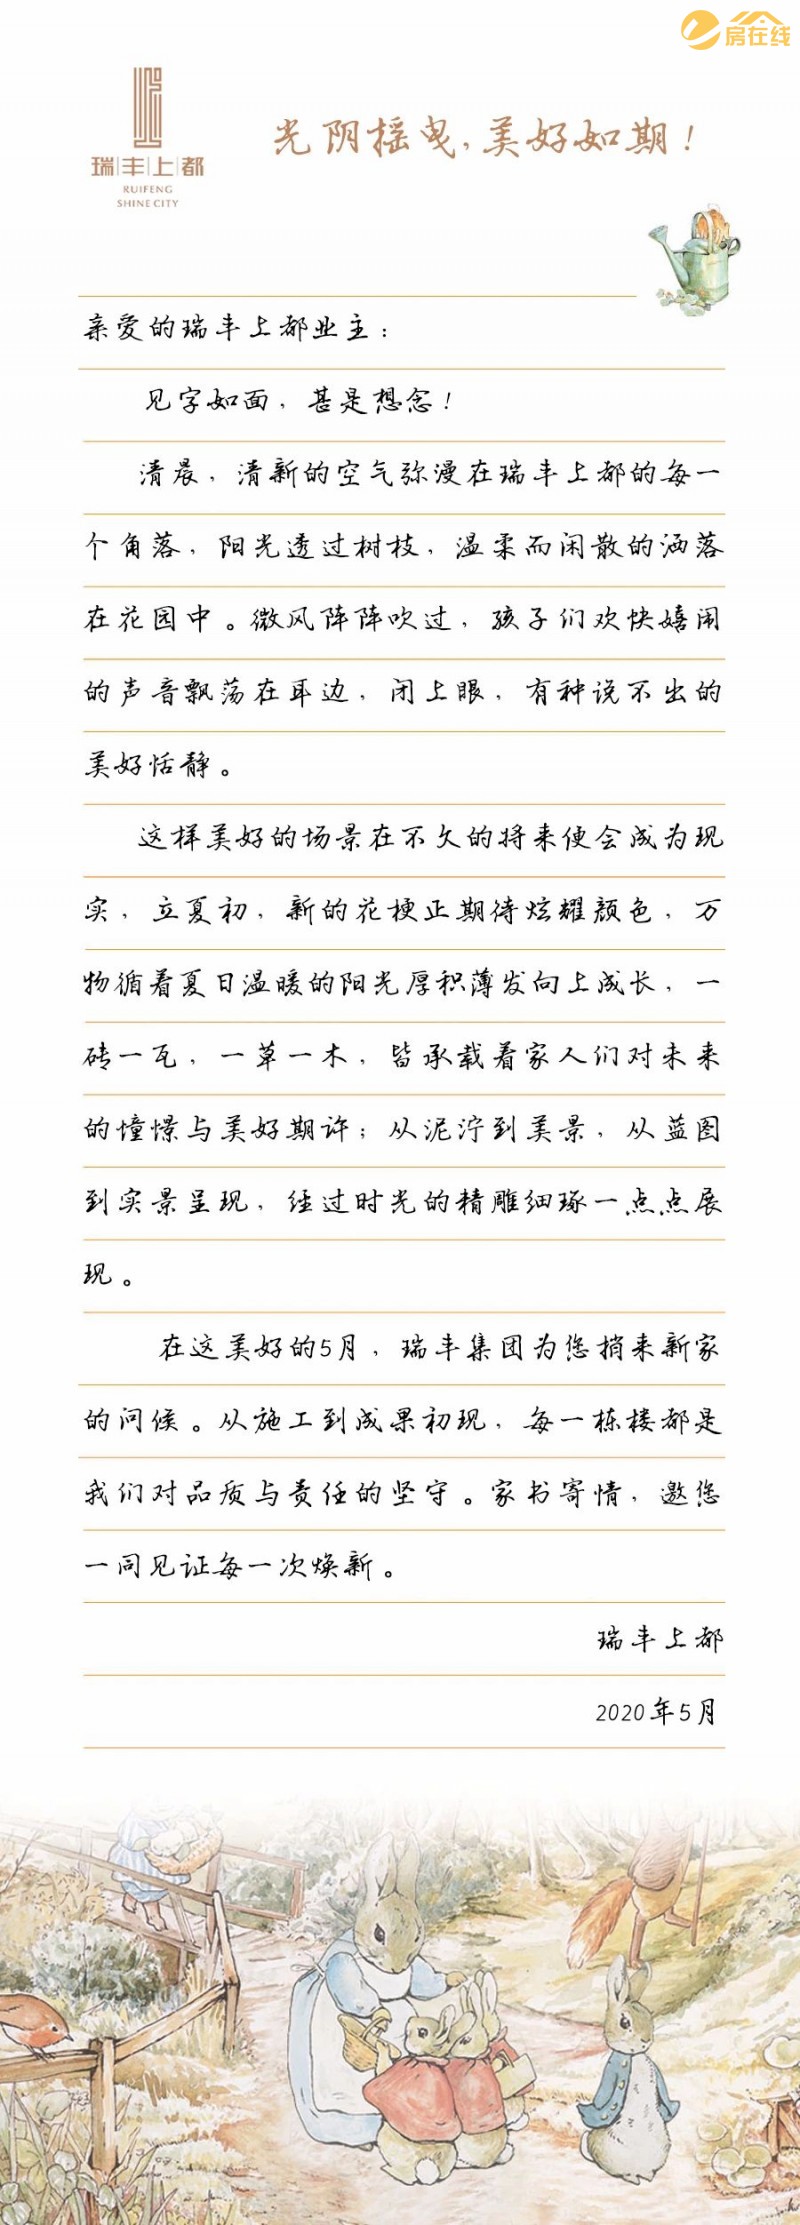 房在线
光阴摇曳,美好如期!
瑞丰上都
RUIFENG
SHINE CITY
亲爱的瑞丰上都业主：
见字如面，甚是想念！
清晨，清新的空气弥漫在瑞丰上都的每一
个角落，阳光透过树枝，温柔而闲散的洒落
在花园中。微风阵阵吹过，孩子们欢快嬉闹
的声音飘荡在耳边，闭上眼，有种说不出的
美好恬静。
这样美好的场景在不久的将来便会成为现
实，立夏初，新的花梗正期待炫耀颜色，万
物循着夏日温暖的阳光厚积薄发向上成长，一
砖一瓦，一草一木，皆承载着家人们对未来
的憧憬与美好期许；从泥泞到美景，从蓝图
到实景呈现，经过时光的精雕细琢一点点展
现。
在这美好的5月，瑞丰集团为您捎来新家
的问候。从施工到成果初现，每一栋楼都是
我们对品质与责任的坚守。家书寄情，邀您
一同见证每一次焕新。
瑞丰上都
2020年5月